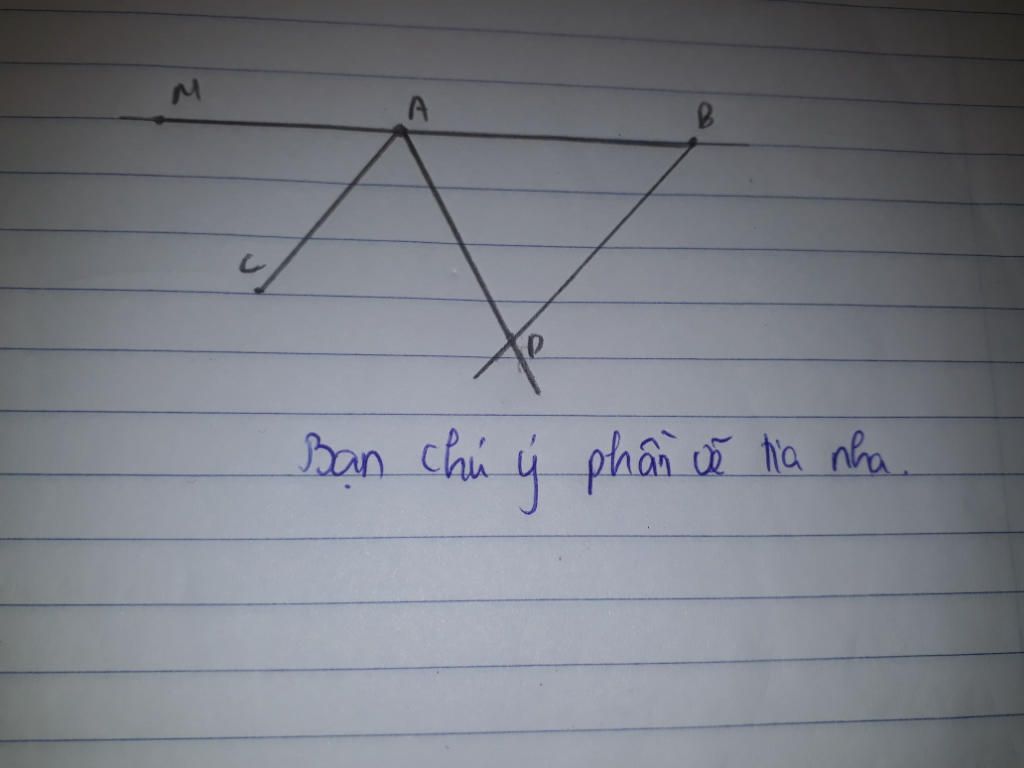 M
A
B
C
D
Bạn chú ý phần vẽ tia nha.